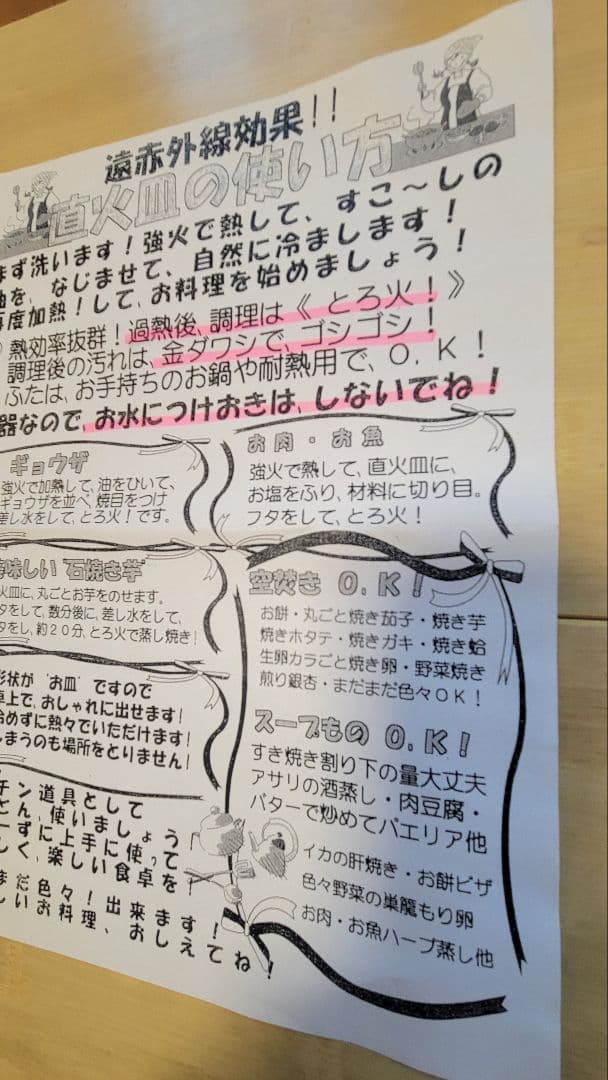 遠赤外線効果!!
直火皿の使い方
まず洗います!強火で熱して、すこ～しの
油を、なじませて、自然に冷まします!
再度加熱!して、お料理を始めましょう!
熱効率抜群!過熱後、調理は《とろ火!》
調理後の汚れは、金ダワシで、ゴシゴシ!
ふたは、お手持ちのお鍋や耐熱用で、O.K!
器なので、お水につけおきは、しないでね!
ギョウザ
強火で加熱して、油をひいて、
ギョウザを並べ、焼目をつけ
差し水をして、とろ火!です。
お肉・お魚
強火で熱して、直火皿に、
お塩をふり、材料に切り目。
フタをして、とろ火!
味しい 石焼き芋
火皿に、丸ごとお芋をのせます。
タをして、数分後に、差し水をして、
タをし、約20分、とろ火で蒸し焼き!
空焚き O.K!
お餅・丸ごと焼き茄子・焼き芋
焼きホタテ・焼きガキ・焼き蛤
生卵カラごと焼き卵・野菜焼き
煎り銀杏・まだまだ色々OK!
形状が"お皿"ですので
卓上で、おしゃれに出せます!
冷めずに熱々でいただけます!
まうのも場所をとりません!
スープもの O.K!
すき焼き割り下の量大丈夫
アサリの酒蒸し・肉豆腐・
バターで炒めてパエリア他
イカの肝焼き・お餅ピザ
色々野菜の巣籠もり卵
お肉・お魚ハーブ蒸し他
チン道具として
どん、使いましょう
ずに上手に使って
しく、楽しい食卓を!
まだ色々!出来ます!
しいお料理、おしえてね!